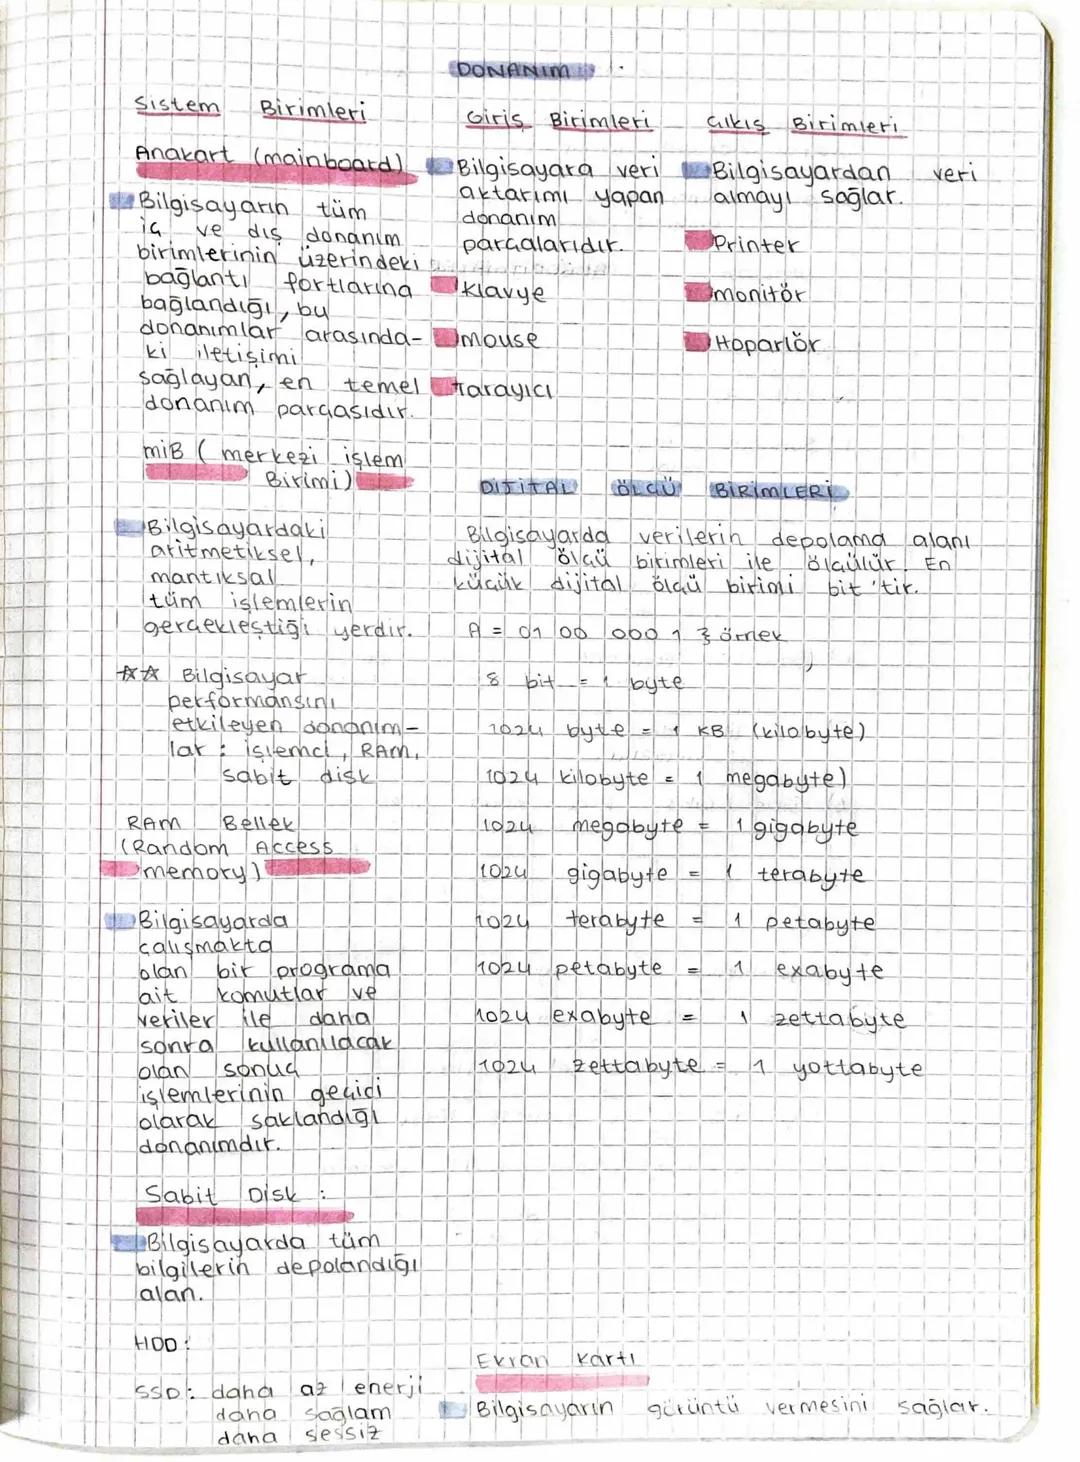 DONANIM
Sistem Birimleri
Anakart (mainboard)
Bilgisayarın tüm
iç ve dış donanım
birimlerinin üzerindeki
bağlantı portlarına
bağlandığı, bu
donanımlar arasında-
ki iletişimi
sağlayan, en temel
donanım parçasıdır.
MİB (merkezi işlem
Birimi)
Bilgisayardaki
aritmetiksel,
mantıksal
tüm işlemlerin
gerçekleştiği yerdir.
☆☆ Bilgisayar
performansını
etkileyen donanım-
lar : işlemci, RAM,
sabit disk
RAM Bellek
(Random Access
memory)
Bilgisayarda
çalışmakta
olan bir programa
ait komutlar ve
veriler ile daha
sonra kullanılacak
olan sonuç
işlemlerinin geçici
olarak saklandığı
donanımdır.
Sabit Disk :
Bilgisayarda tüm
bilgilerin depolandığı
alan.
HDD :
SSD : daha az enerji
daha sağlam
daha sessiz
Giriş Birimleri
Bilgisayara veri
aktarımı yapan
donanım
parçalarıdır.
klavye
mouse
tarayıcı
Çıkış Birimleri
Bilgisayardan veri
almayı sağlar.
Printer
monitör
Hoparlör
DİJİTAL ÖLÇÜ BİRİMLERİ
Bilgisayarda verilerin depolama alanı
dijital ölçü birimleri ile ölçülür. En
küçük dijital ölçü birimi bit 'tir.
A = 01 00 000 1 } örnek
8 bit = 1 byte
1024 byte = 1 KB (kilobyte)
1024 kilobyte = 1 megabyte)
1024 megabyte = 1 gigabyte
1024 gigabyte = 1 terabyte
1024 terabyte = 1 petabyte
1024 petabyte = 1 exabyte
1024 exabyte = 1 zettabyte
1024 zettabyte = 1 yottabyte
Ekran Kartı
Bilgisayarın görüntü vermesini sağlar.